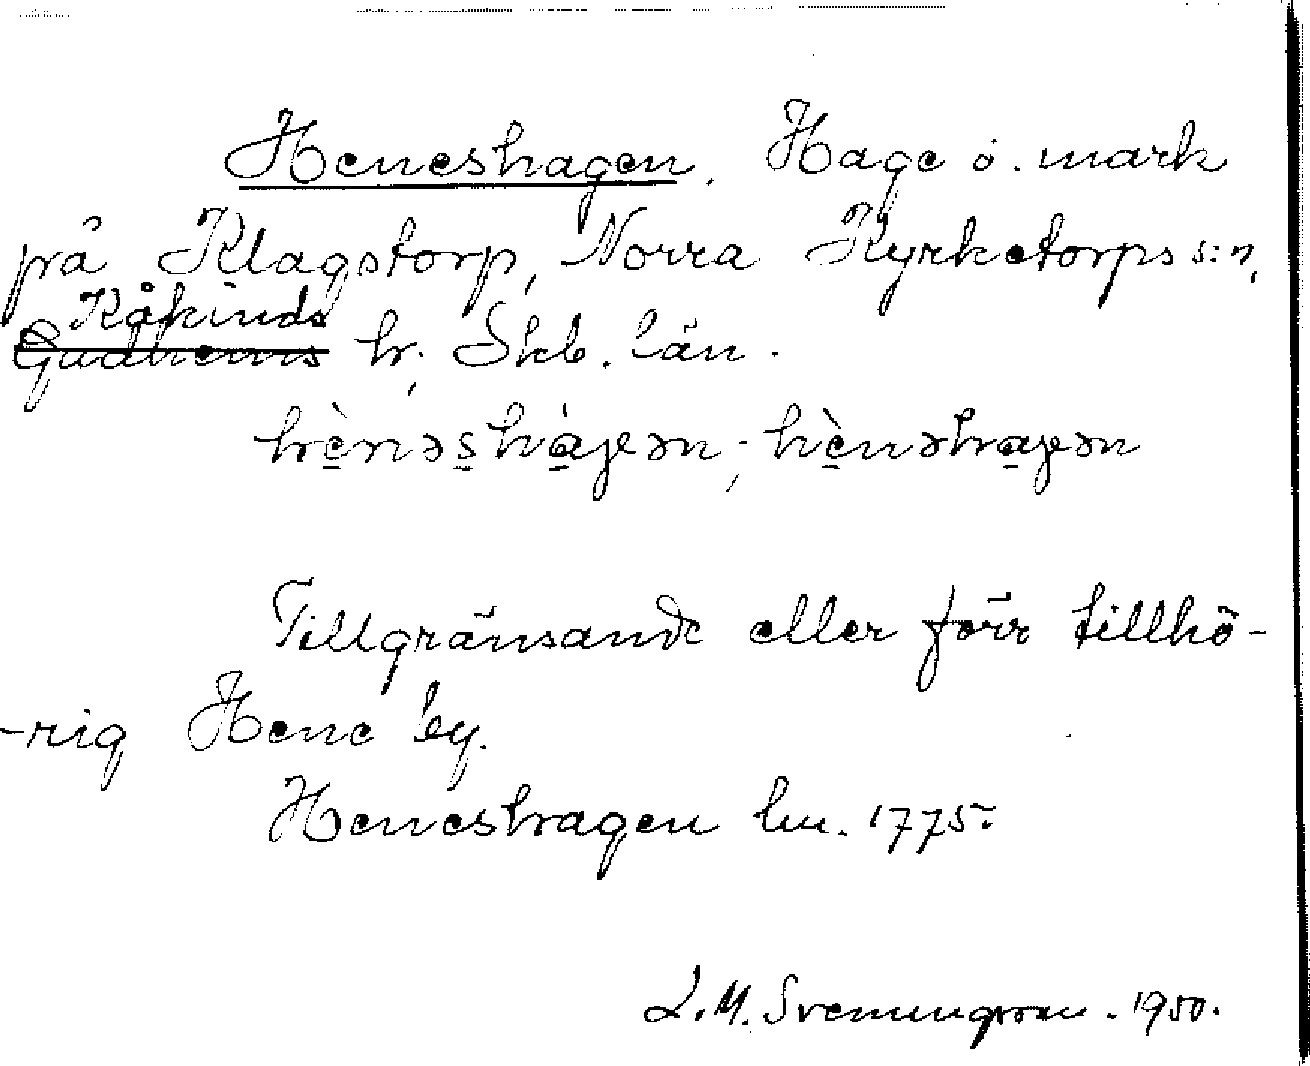 Heneshagen. Hage o. mark
på Klagstorp, Norra Kyrketorps s:n,
Kåkinds
Gudhems hr, Skb. län.
hènəshàgen; hènəhagen
Tillgränsande eller förr tillhö-
-rig Hene by.
Heneshagen lm. 1775.
L. M. Svenungsson. 1950.